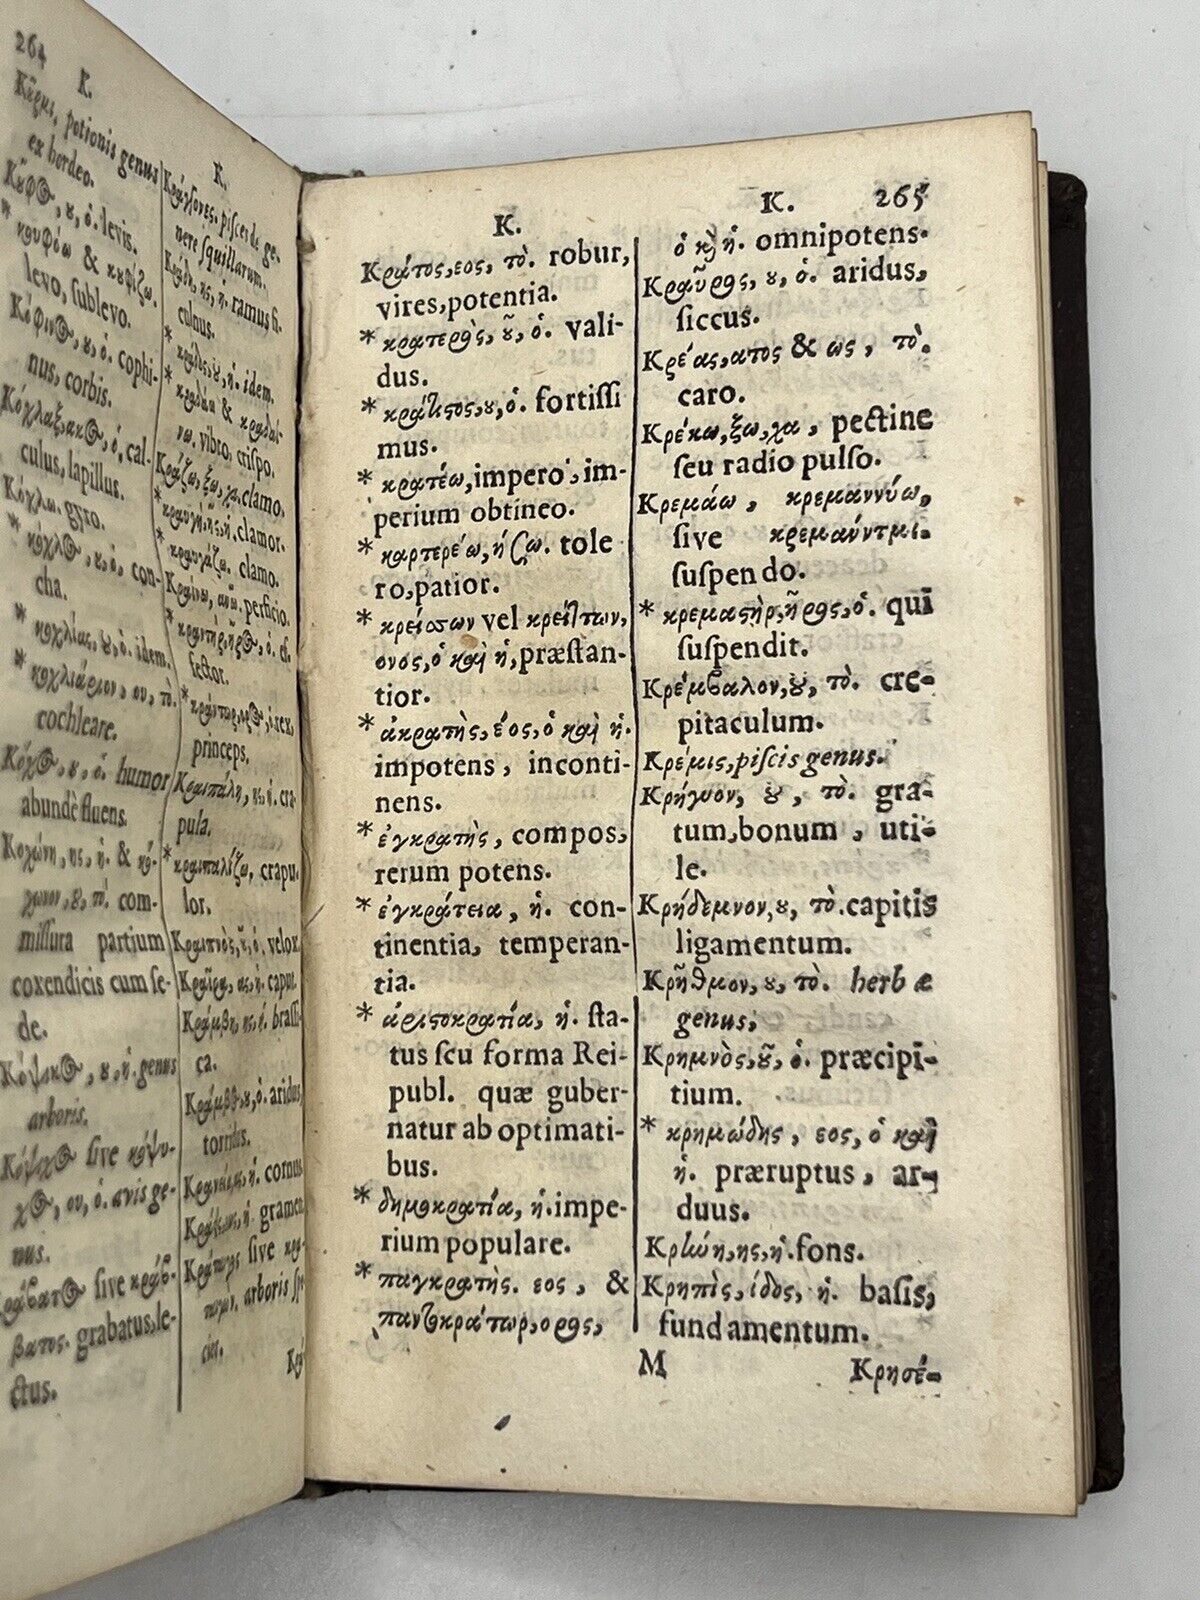 264
K.
potionis genus
ex hordeo.
ȣ, ὁ. levis.
* κȣφόω & κȣφίζω.
levo, sublevo.
ȣ, ὁ. cophi-
nus, corbis.
ὁ, cal-
culus, lapillus.
gyro.
ȣ, ὁ, con-
cha.
ȣ, ὁ. idem.
ου, τὸ.
cochleare.
ȣ, ὁ. humor
abundè fluens.
Κοχώνη, ης, ἡ. &
ȣ, τὸ. com-
missura partium
coxendicis cum se-
de.
ȣ, ἡ. genus
arboris.
sive
ου, ὁ. avis ge-
nus.
sive
βατος. grabatus, le-
ctus.
K.
piscis de ge-
nere squillarum.
Κράδη, ης, ἡ ramus fi-
culnus.
ἡ. idem.
&
vibro, crispo.
Κράζω, ξω, χα, clamo.
* κραυγὴ, ῆς, ἡ. clamor.
* κραυγάζω. clamo.
perficio.
ὁ. ef-
fector.
rex,
princeps.
Κραιπάλη, ης, ἡ. cra-
pula.
* κραιπαλίζω, crapu-
lor.
Κραιπνὸς, ȣ͂, ὁ. velox.
Κραῖρα, ας, ἡ. caput.
Κράμβη, ης, ἡ. brassi-
ca.
ȣ, ὁ. aridus,
torridus.
ἡ. cornus.
ἡ. gramen
sive
arboris
K.
Κράτος, εος, τὸ. robur,
vires, potentia.
* κρατερὸς, ȣ͂, ὁ. vali-
dus.
* κράτιςος, ȣ, ὁ. fortissi
mus.
* κρατέω, impero, im-
perium obtineo.
* καρτερέω, ήσω. tole
ro, patior.
* κρείσσων vel κρείττων,
ονος, ὁ καὶ ἡ, præstan-
tior.
* ἀκρατὴς, έος, ὁ καὶ ἡ.
impotens, inconti-
nens.
* ἐγκρατὴς, compos,
rerum potens.
* ἐγκράτεια, ἡ. con-
tinentia, temperan-
tia.
* ἀριςοκρατία, ἡ. sta-
tus seu forma Rei-
publ. quæ guber-
natur ab optimati-
bus.
* δημοκρατία, ἡ. impe-
rium populare.
* παγκρατὴς. εος, &
παντοκράτωρ, ορος,
K. 265
ὁ κὶ ἡ. omnipotens.
Κραῦρος, ȣ, ὁ. aridus,
siccus.
Κρέας, ατος & ως, τὸ.
caro.
Κρέκω, ξω, χα, pectine
seu radio pulso.
Κρεμάω, κρεμαννύω,
sive κρεμαύνυμι.
suspendo.
* κρεμαςὴρ, ῆρος, ὁ. qui
suspendit.
Κρέμβαλον, ȣ, τὸ. cre-
pitaculum.
Κρέμις, piscis genus.
Κρήγυον, ȣ, τὸ. gra-
tum, bonum, uti-
le.
Κρήδεμνον, ȣ, τὸ. capitis
ligamentum.
Κρῆθμον, ȣ, τὸ. herbæ
genus,
Κρημνὸς, ȣ͂, ὁ. præcipi-
tium.
* κρημώδης, εος, ὁ καὶ
ἡ. præruptus, ar-
duus.
Κρήνη, ης, ἡ. fons.
Κρηπὶς, ίδος, ἡ. basis,
fundamentum.
M Κρησέ-